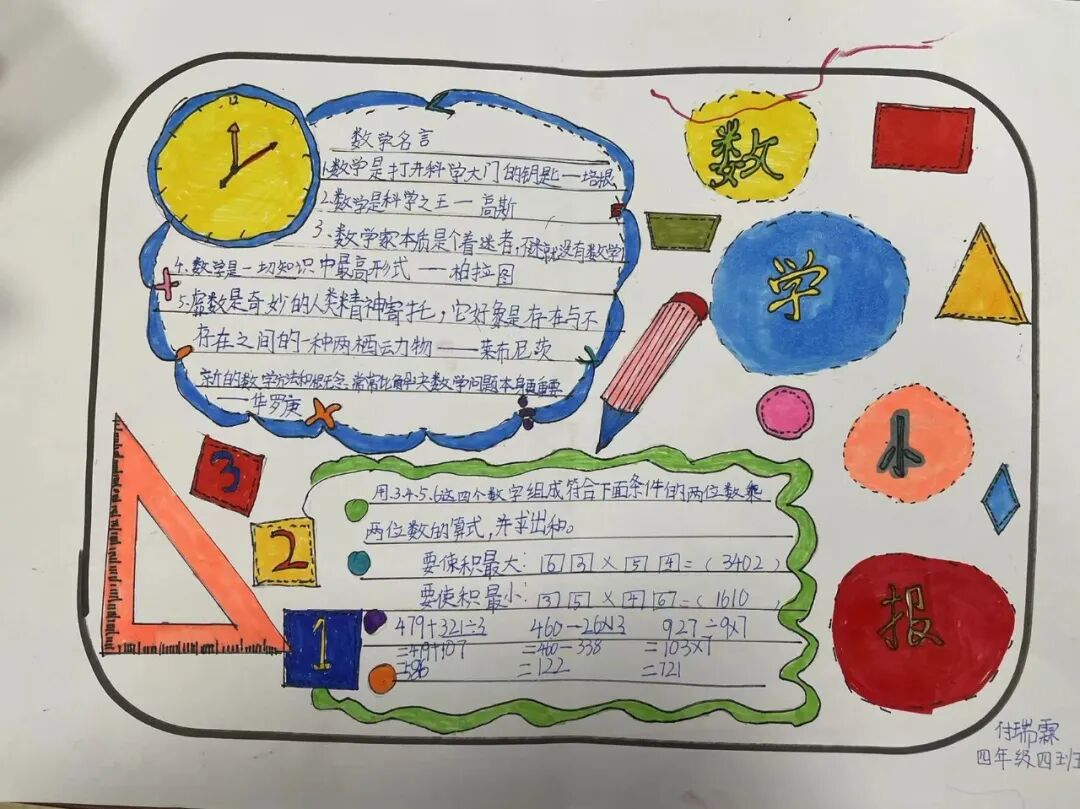 数
学
小
报
12
数学名言
1.数学是打开科学大门的钥匙—培根
2.数学是科学之王—高斯
3、数学家本质是个着迷者,不迷就没有数学
4.数学是一切知识中最高形式——柏拉图
5.虚数是奇妙的人类精神寄托,它好象是存在与不
存在之间的一种两栖动物——莱布尼茨
新的数学方法和概念,常常比解决数学问题本身更重要
——华罗庚
3
2
1
用.3.4.5.6这四个数字组成符合下面条件的两位数乘
两位数的算式,并求出积。
要使积最大: 6 3 × 5 4 =(3402)
要使积最小: 3 5 × 4 6 =(1610)
479+321÷3 460-26×13 927÷9×7
=479+107 =460-338 =103×7
=586 =122 =721
付瑞霖
四年级四班